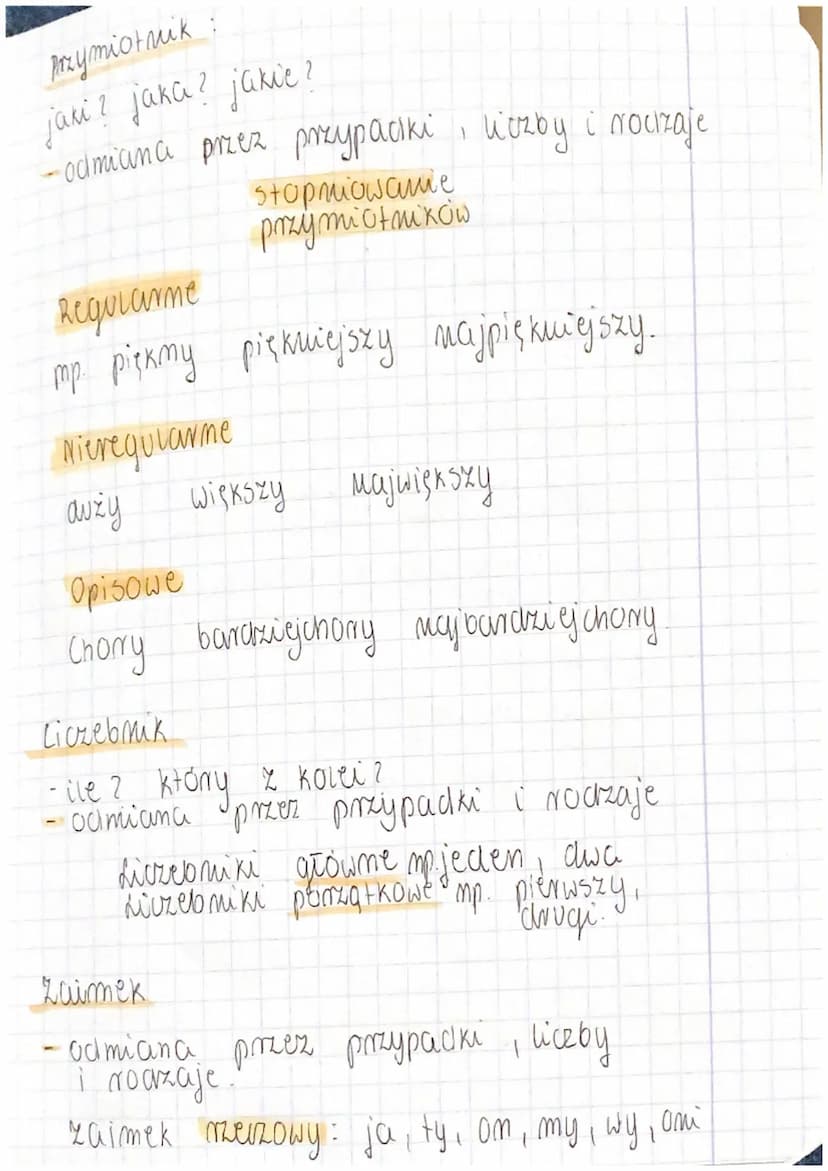 Przymiotnik :
jaki? jaka? jakie?
- odmiana przez przypadki, liczby i rodzaje
stopniowanie
przymiotników
Regularne
np. piękny piękniejszy najpiękniejszy.
Nieregularne
duży większy największy
Opisowe
Chory bardziejchory najbardziejchory
Liczebnik
- ile? który z kolei?
- odmiana przez przypadki i rodzaje
Liczebniki główne np. jeden, dwa
Liczebniki porządkowe np. pierwszy,
drugi.
Zaimek
- odmiana przez przypadki, liczby
i rodzaje.
zaimek rzeczowy: ja, ty, on, my, wy, oni